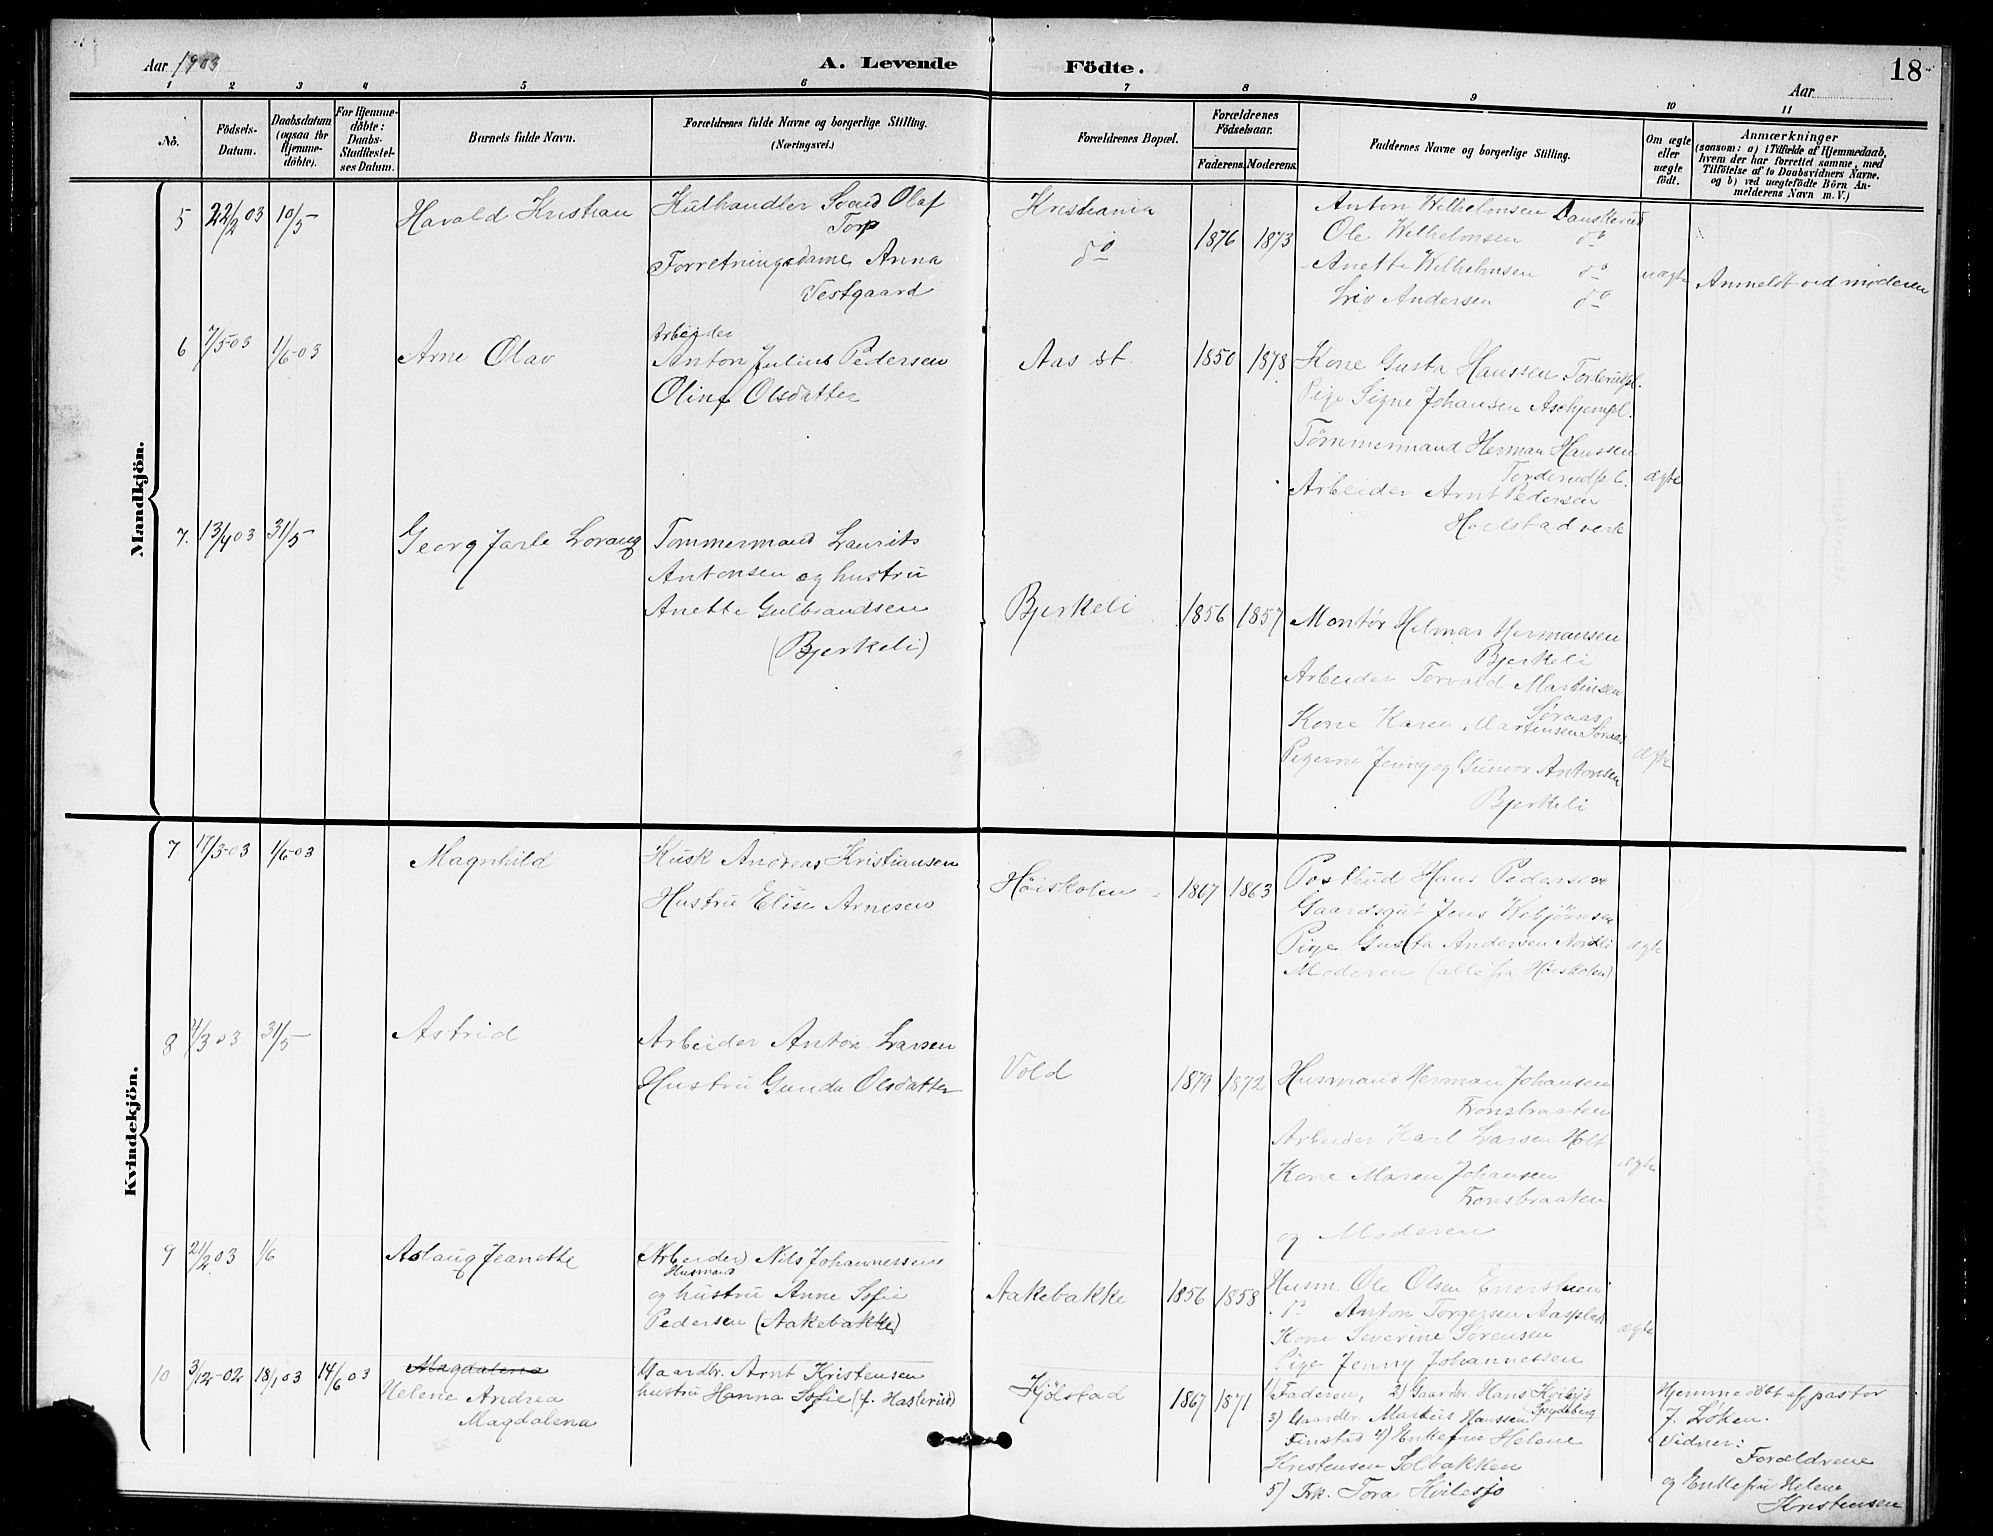 Aar 1903
A. Levende Födte.
Aar
18
1 2 3 4 5 6 7 8 9 10 11
No.
Födsels-Datum.
Daabsdatum (ogsaa for Hjemme-döbte).
For Hjemme-döbte: Daabs-Stadfæstel-ses Datum.
Barnets fulde Navn.
Forældrenes fulde Navne og borgerlige Stilling.
(Næringsvei.)
Forældrenes Bopæl.
Forældrenes Födselsaar.
Faderens. Moderens.
Faddernes Navne og borgerlige Stilling.
Om ægte eller uægte födt.
Anmærkninger
(saasom: a) i Tilfælde af Hjemmedaab,
hvem der har forrettet samme, med
Tilföielse af to Daabsvidners Navne,
og b) ved uægtefödte Börn An-
melderens Navn m.V.)
Mandkjön.
5 22/2 03 10/5 Harald Kristian
Kulhandler Svend Olaf
Torp
Forretningsdame Anna
Vestgaard
Kristiania
do
1876 1873
Anton Wilhelmsen Danskerud
Ole Wilhelmsen do
Anette Wilhelmsen do
Liv Andersen do
uægte
Anmeldt ved moderen
6 7/5 03 1/6-03 Arne Olav
Arbejder
Anton Julius Pedersen
Oline Olsdatter
Aas st.
1850 1878
Kone Gusta Hanssen Torderudpl.
Pige Signe Johansen Aschjempl.
Tømmermand Herman Hanssen
Torderudpl.
Arbeider Arnt Pedersen
Holstad verk
ægte
7. 13/4 03 31/5 Georg Jarle Lorang
Tømmermand Laurits
Antonsen og hustru
Anette Gulbrandsen
(Bjerkeli)
Bjerkeli
1856 1857
Montør Helmar Hermansen
Bjerkeli
Arbeider Torvald Martinsen
Søraas
Kone Karen Martensen Søraas
Pigerne Jenny og Gunvor Antonsen
Bjerkeli
ægte
Kvindekjön.
7 17/3-03 1/6-03 Magnhild
Kusk Andreas Kristiansen
Hustru Elise Arnesen
Høiskolen
1867 1863
Postbud Hans Pedersen
Gaardsgut Jens Webjørnsen
Pige Gusta Andersen Nordli
Moderen (alle fra Høiskolen)
ægte
8 4/3 03 31/5 Astrid
Arbeider Anton Larsen
Hustru Gunda Olsdatter
Vold
1879 1872
Husmand Herman Johansen
Fronsbraaten
Arbeider Karl Larsen Holt
Kone Maren Johansen
Fronsbraaten
og Moderen
ægte
9 21/2 03 1/6 Aslaug Jeanette
(Arbeider) Nils Johannessen
Husmand
og hustru Anne Sofie
Pedersen (Aakebakke)
Aakebakke
1856 1858
Husm. Ole Olsen Enerstuen
do Anton Torgersen Aasplads
Kone Severine Sørensen
Pige Jenny Johannessen
ægte
10 3/12-02 18/1 03 14/6 03 Magdalena
Helene Andrea
Magdalena
Gaardbr. Arnt Kristensen
hustru Hanna Sofie (f. Haslerud)
Kjølstad
1867 1871
1) Faderen, 2) Gaardbr. Hans Hvilesjø
Spydeberg
3) Gaardbr. Markus Hanssen
Finstad 4) Enkefru Helene
Kristensen Solbakken
5) Frk. Tora Hvilesjø
Hjemmedøbt af pastor
J. Løken.
Vidner:
Forældrene
og Enkefru Helene
Kristensen